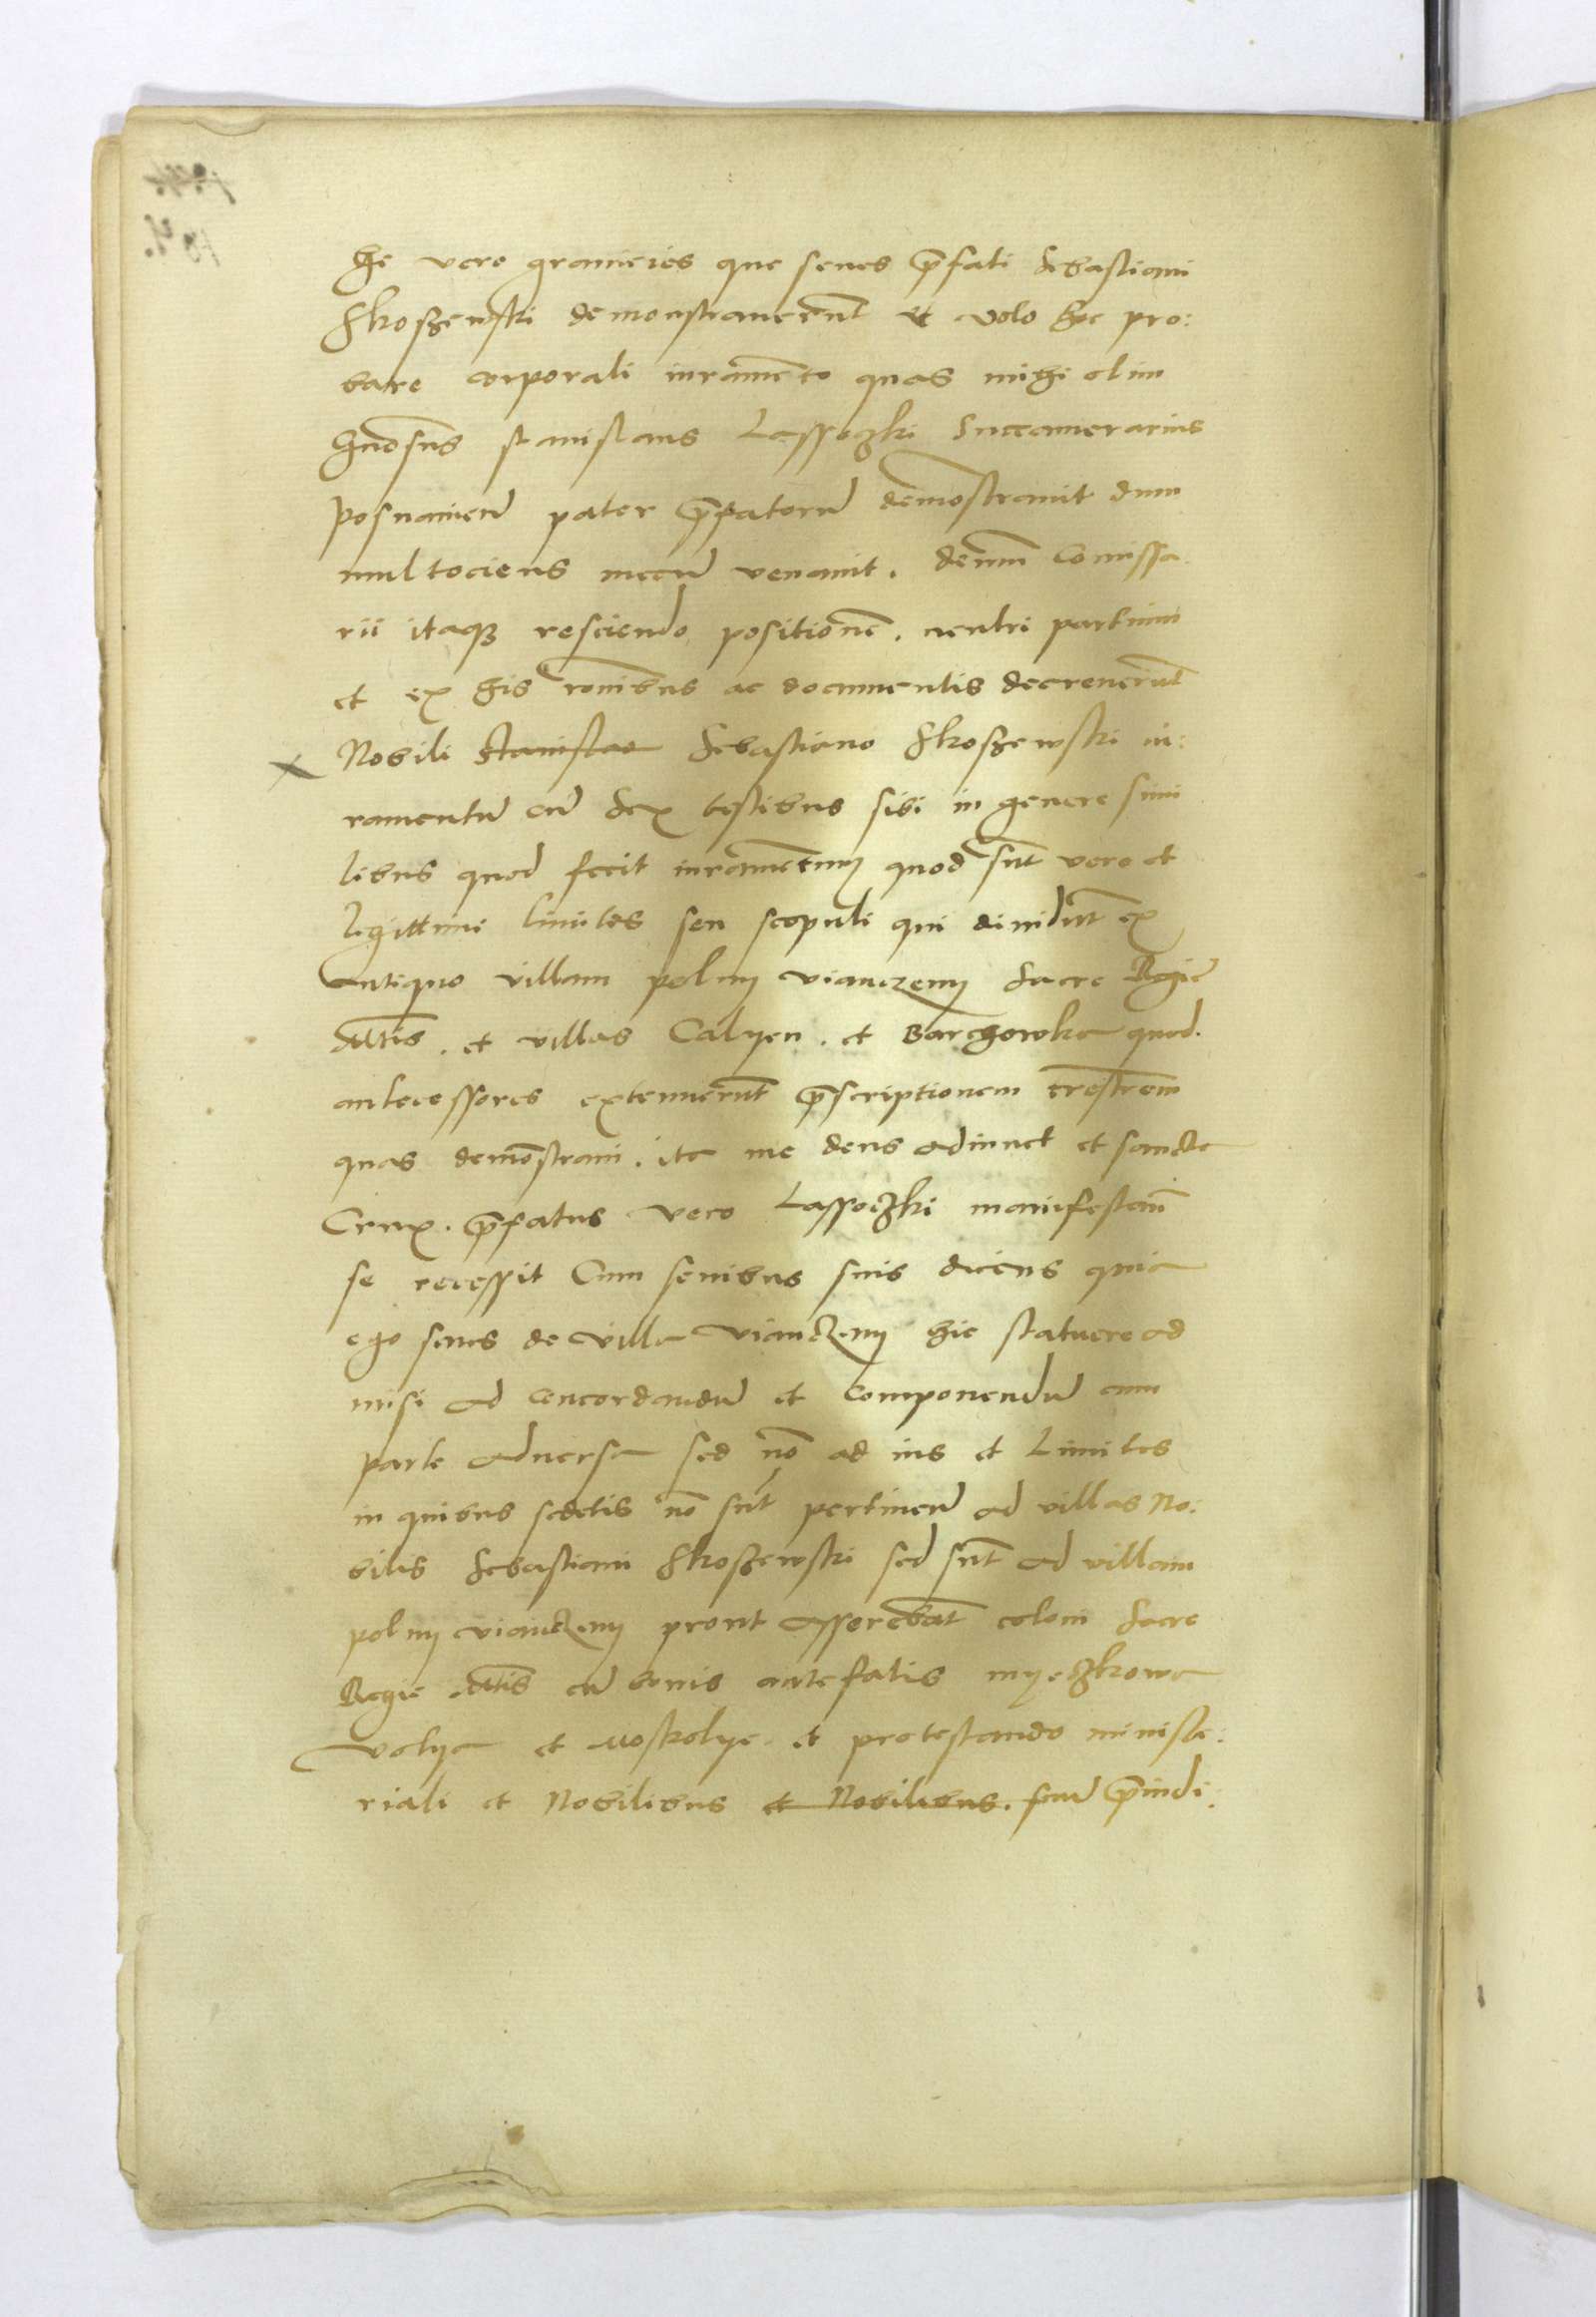 he vero granicies que senes p̄fati Sebastiani
Skoszewski demonstraverunt et volo hec pro:
bare corporali iuramēto quas mihi olim
Gn̄osus stanislaus Lassoczki Succamerarius
posnanien̄ pater p̄fatorū demōstravit dum
multociens mecū venavit. demum Comissa
rii itaqȝ resciendo positionē. neutri partium
et ex his rōnibus ac documentis decreverūt
Nobili Stanislao Sebastiano Skoszewski iu:
ramentū cū sex testibus sibi in genere simi
libus quod fecit iuramentum quod sūt vere et
legittimi limites seu scopuli qui dividūt ex
antiquo villam polny vianczeny Sacre Regie
Mtīs. et villas Calyen. et Barchowka quod.
antecessores extenuerūt p̄scriptionem trestrem
quas demōstravi. ita me deus adiuvet et sancta
Crux. p̄fatus vero Lassoczki manifestan̄
se recessit Cum senibus suis dicens quia
ego senes de villa vianczeny hic statuere ad
misi ad concordandū et componendū cum
parte adversa sed nō ad ius et Limites
in quibus sedetis nō sūt pertinen̄ ad villas No:
bilis Sebastiani Skoszewski sed sūt ad villam
polny vianczeny prout asserebāt coloni Sacre
Regie Mtīs cū bonis antefatis myeczkowa
volya et Moskolye et protestando ministe:
riali et Nobilibus et Nobilibus. suū p̄iudi: